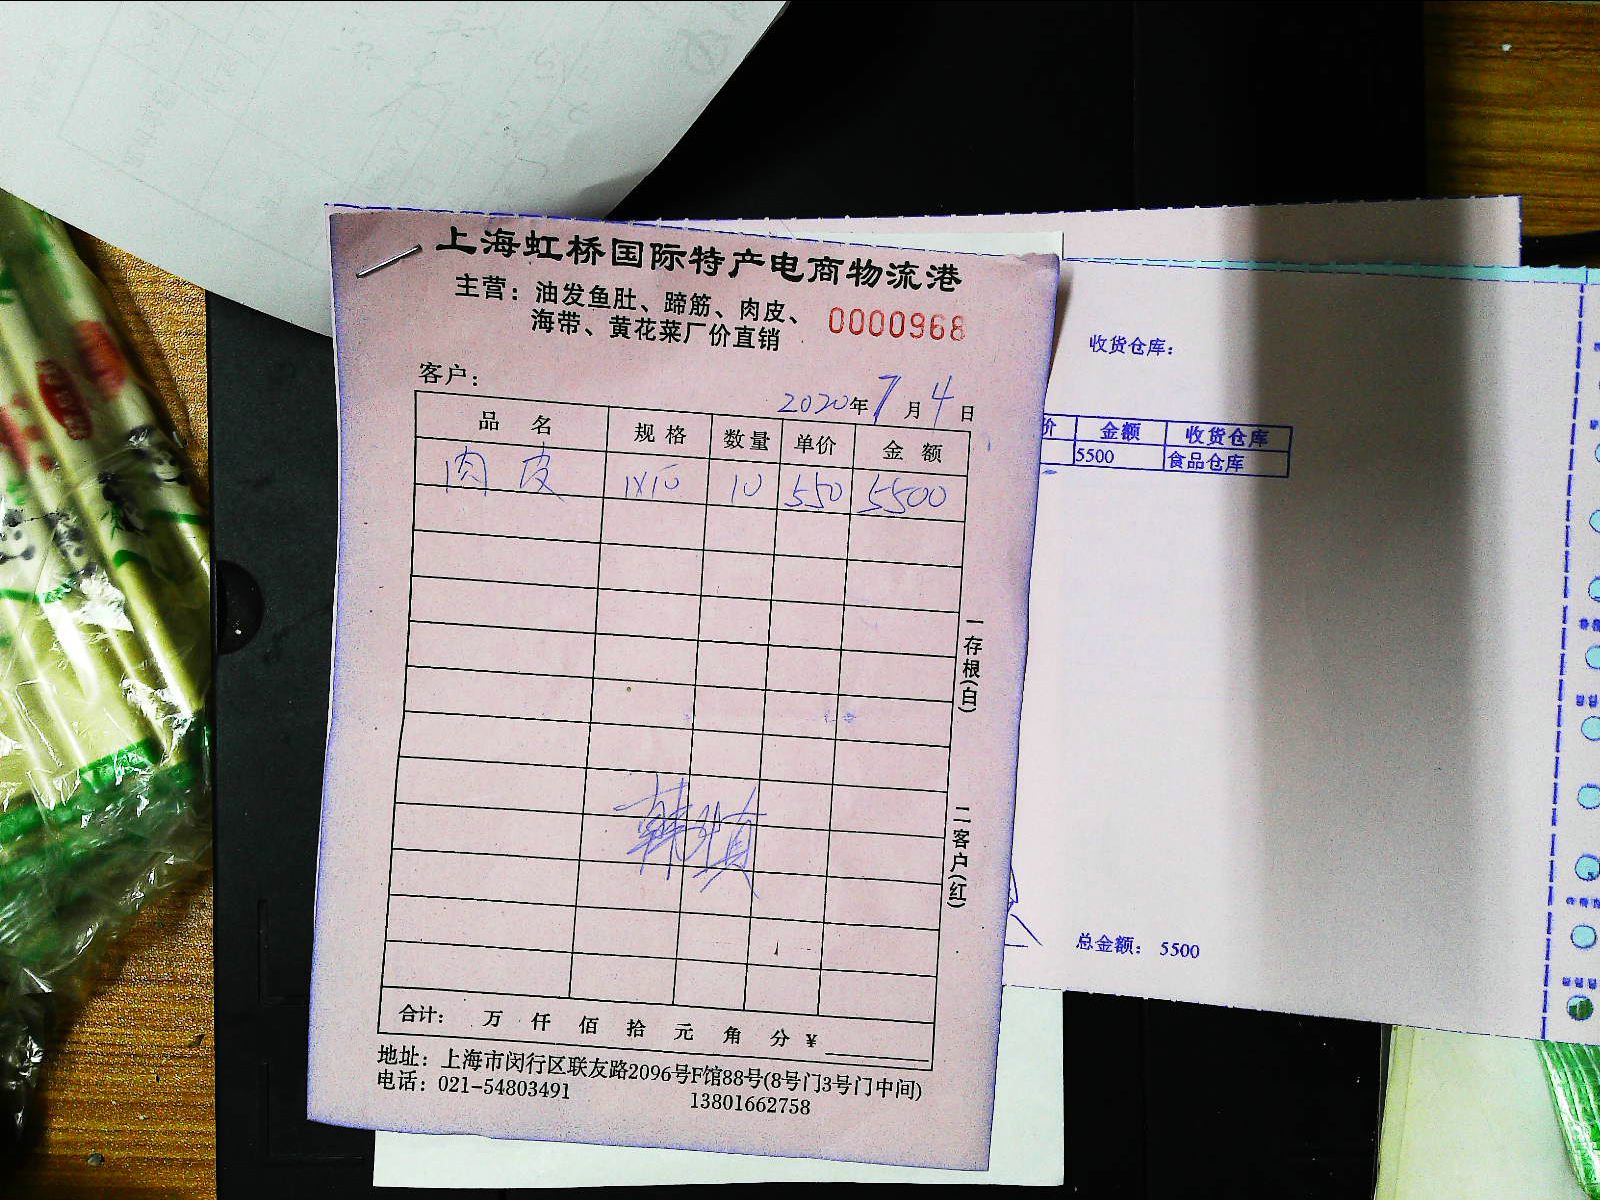 上海虹桥国际特产电商物流港
主营：油发鱼肚、蹄筋、肉皮、
海带、黄花菜厂价直销
0000968
客户：
2020年7月4日
品 名 规 格 数量 单价 金 额
肉皮 1X10 10 550 5500
一存根(白)
二客户(红)
合计： 万 仟 佰 拾 元 角 分 ¥
地址：上海市闵行区联友路2096号F馆88号(8号门3号门中间)
电话：021-54803491 13801662758
收货仓库：
价 金额 收货仓库
5500 食品仓库
总金额： 5500